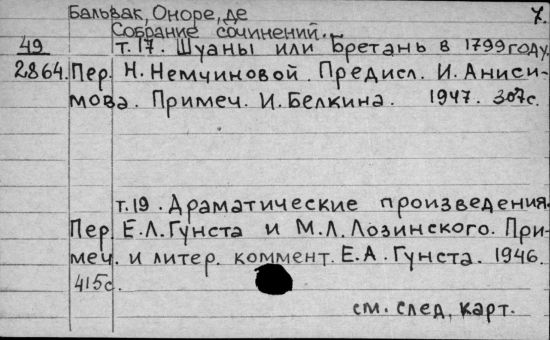 Бальзак, Оноре, де 7.
Собрание сочинений.
49 т. 17. Шуаны или Бретань в 1799 году.
2864. Пер. Н. Немчиновой. Предисл. И. Аниси-
мова. Примеч. И. Белкина. 1947. 307с.
т. 19. Драматические произведения.
Пер. Е. Л. Гунста и М. Л. Лозинского. При-
меч. и литер. коммент. Е. А. Гунста. 1946.
415с.
см. след. карт.